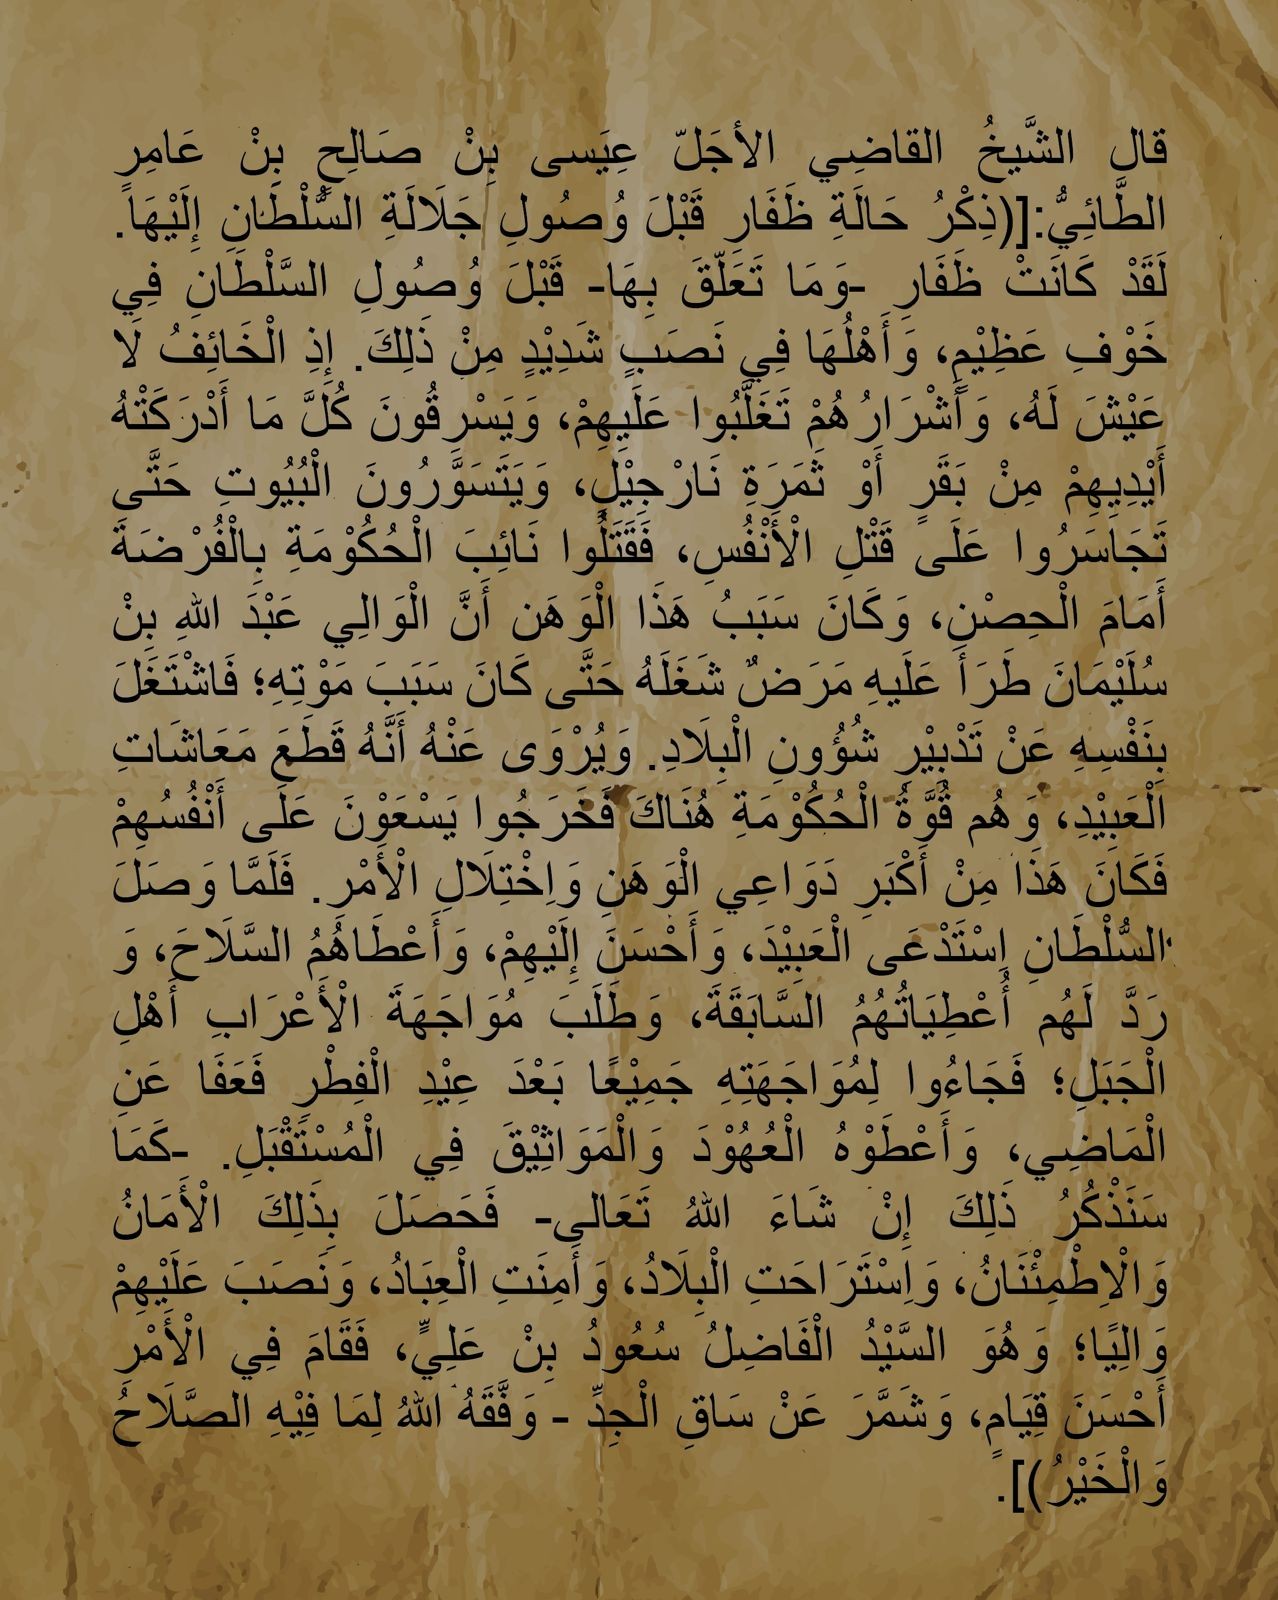 قال الشَّيخُ القاضِي الأجَلّ عِيَسى بِنْ صَالِحِ بِنْ عَامِرِ
الطَّائِيُّ:[(ذِكْرُ حَالَةِ ظَفَارِ قَبْلَ وُصُولِ جَلَالَةِ السُّلْطَانِ إِلَيْهَا.
لَقَدْ كَانَتْ ظَفَارِ -وَمَا تَعَلّقَ بِهَا- قَبْلَ وُصُولِ السَّلْطَانِ فِي
خَوْفِ عَظِيْمٍ، وَأَهْلُهَا فِي نَصَبٍ شَدِيْدٍ مِنْ ذَلِكَ. إِذِ الْخَائِفُ لَا
عَيْشَ لَهُ، وَأَشْرَارُهُمْ تَغَلَّبُوا عَلَيِهِمْ، وَيَسْرِقُونَ كُلَّ مَا أَدْرَكَتْهُ
أَيْدِيِهِمْ مِنْ بَقَرٍ أَوْ ثَمَرَةِ نَارْجِيْلٍ، وَيَتَسَوَّرُونَ الْبُيُوتِ حَتَّى
تَجَاسَرُوا عَلَى قَتْلِ الْأَنْفُسِ، فَقَتَلُوا نَائِبَ الْحُكُوْمَةِ بِالْفُرْضَةَ
أَمَامَ الْحِصْنِ، وَكَانَ سَبَبُ هَذَا الْوَهَن أَنَّ الْوَالِي عَبْدَ اللهِ بِنْ
سُلَيْمَانَ طَرَأَ عَلَيهِ مَرَضٌ شَغَلَهُ حَتَّى كَانَ سَبَبَ مَوْتِهِ؛ فَاشْتَغَلَ
بِنَفْسِهِ عَنْ تَدْبِيْرِ شُؤُونِ الْبِلَادِ. وَيُرْوَى عَنْهُ أَنَّهُ قَطَعَ مَعَاشَاتِ
الْعَبِيْدِ، وَهُم قُوَّةُ الْحُكُوْمَةِ هُنَاكَ فَخَرَجُوا يَسْعَوْنَ عَلَى أَنْفُسُهِمْ
فَكَانَ هَذَا مِنْ أَكْبَرِ دَوَاعِي الْوَهَنِ وَاِخْتِلَالِ الْأَمْر. فَلَمَّا وَصَلَ
السُّلْطَانِ اِسْتَدْعَى الْعَبِيْدَ، وَأَحْسَنَ إِلَيْهِمْ، وَأَعْطَاهُمُ السَّلَاحَ، وَ
رَدَّ لَهُم أُعْطِيَاتُهُمُ السَّابَقَةَ، وَطَلَبَ مُوَاجَهَةَ الْأَعْرَابِ أَهْلِ
الْجَبَلِ؛ فَجَاءُوا لِمُوَاجَهَتِهِ جَمِيْعًا بَعْدَ عِيْدِ الْفِطْرِ فَعَفَا عَنِ
الْمَاضِي، وَأَعْطَوْهُ الْعُهُوْدَ وَالْمَوَاثِيْقَ فِي الْمُسْتَقْبَلِ. -كَمَا
سَنَذْكُرُ ذَلِكَ إِنْ شَاءَ اللهُ تَعَالى- فَحَصَلَ بِذَلِكَ الْأَمَانُ
وَالْاِطْمِئْنَانُ، وَاِسْتَرَاحَتِ الْبِلَادُ، وَأَمِنَتِ الْعِبَادُ، وَنَصَبَ عَلَيْهِمْ
وَالِيًا؛ وَهُوَ السَّيْدُ الْفَاضِلُ سُعُودُ بِنْ عَلِيٍّ، فَقَامَ فِي الْأَمْرِ
أَحْسَنَ قِيَامٍ، وَشَمَّرَ عَنْ سَاقِ الْجِدِّ - وَفَّقَهُ اللهُ لِمَا فِيْهِ الصَّلَاحُ
وَالْخَيْرُ)].